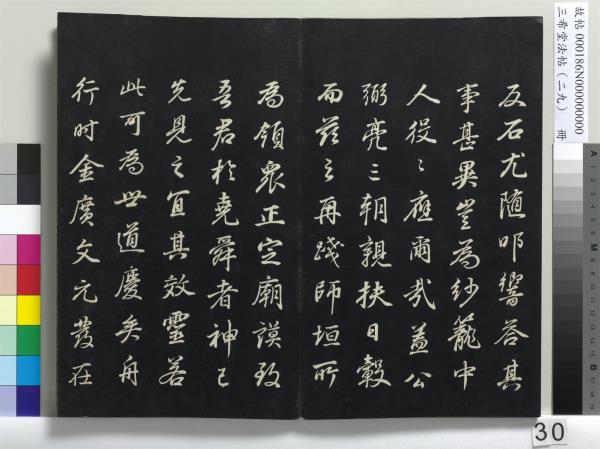 反石尤随叩響答其
事甚異豈為紗籠中
人役々應爾哉蓋公
弼亮三朝親扶日轂
而茲之再踐師垣所
為領眾正定廟謨致
吾君於堯舜者神已
先見之宜其效靈若
此可為世道慶矣舟
行时金廣文元發在
故帖 000186N000000000
三希堂法帖（二九） 冊
30